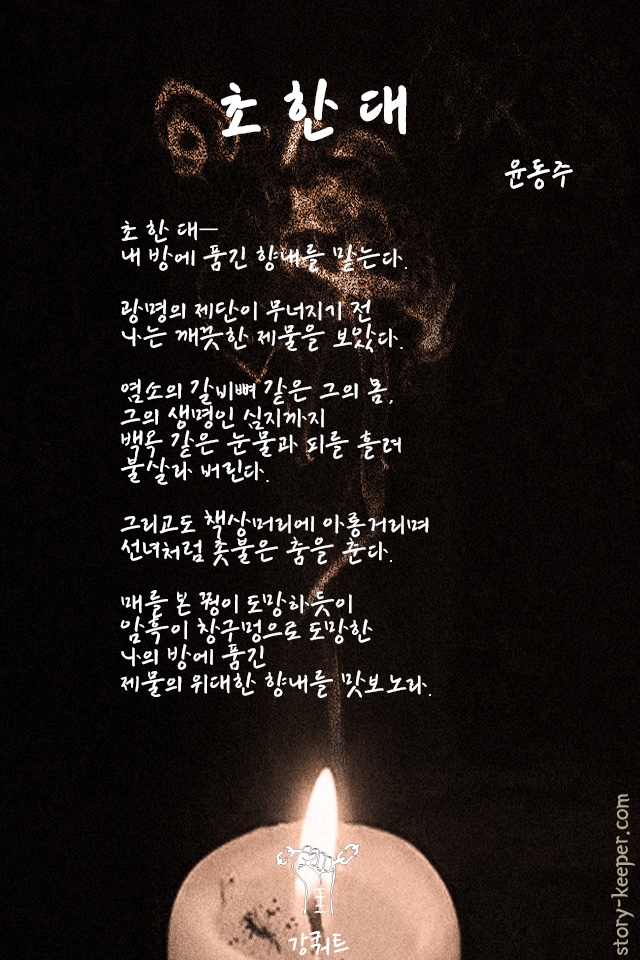 초 한 대
윤동주
초 한 대―
내 방에 품긴 향내를 맡는다.
광명의 제단이 무너지기 전
나는 깨끗한 제물을 보았다.
염소의 갈비뼈 같은 그의 몸,
그의 생명인 심지까지
백옥 같은 눈물과 피를 흘려
불살라 버린다.
그리고도 책상머리에 아롱거리며
선녀처럼 촛불은 춤을 춘다.
매를 본 꿩이 도망하듯이
암흑이 창구멍으로 도망한
나의 방에 품긴
제물의 위대한 향내를 맛보노라.
강쿼트
story-keeper.com